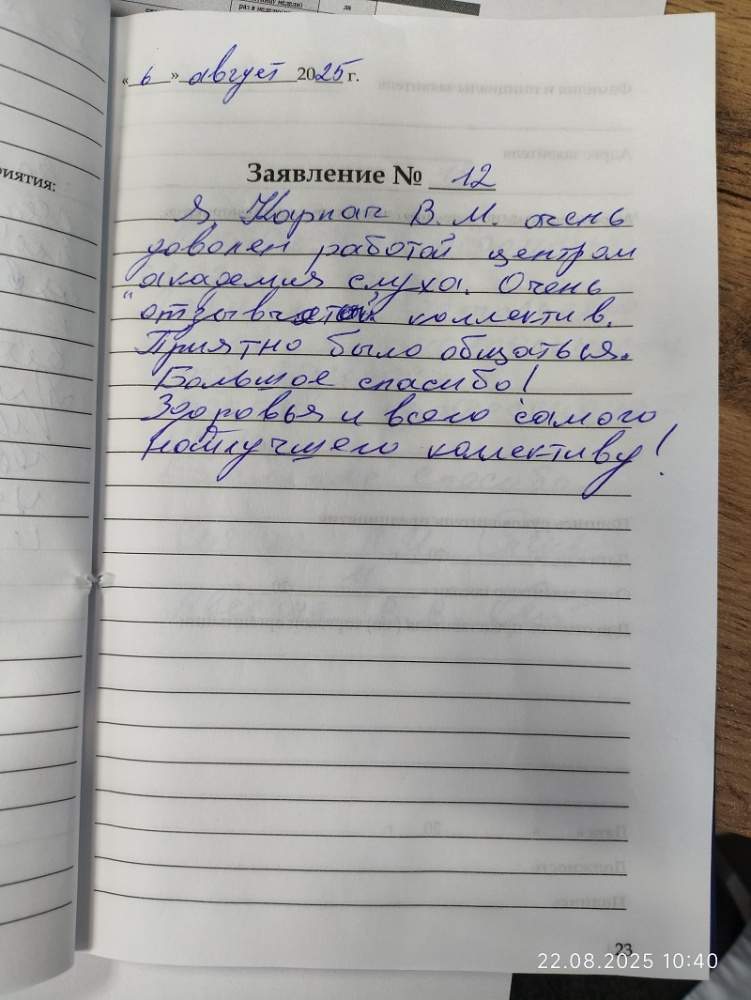 раз в неделю
за
« 6 » август 2025 г.
риятия:
Заявление № 12
Я, Карпач В. М. очень
доволен работой центром
академия слуха. Очень
"отзывчстый коллектив.
Приятно было общаться.
Большое спасибо!
Здоровья и всего самого
наилучшего коллективу!
23
22.08.2025 10:40